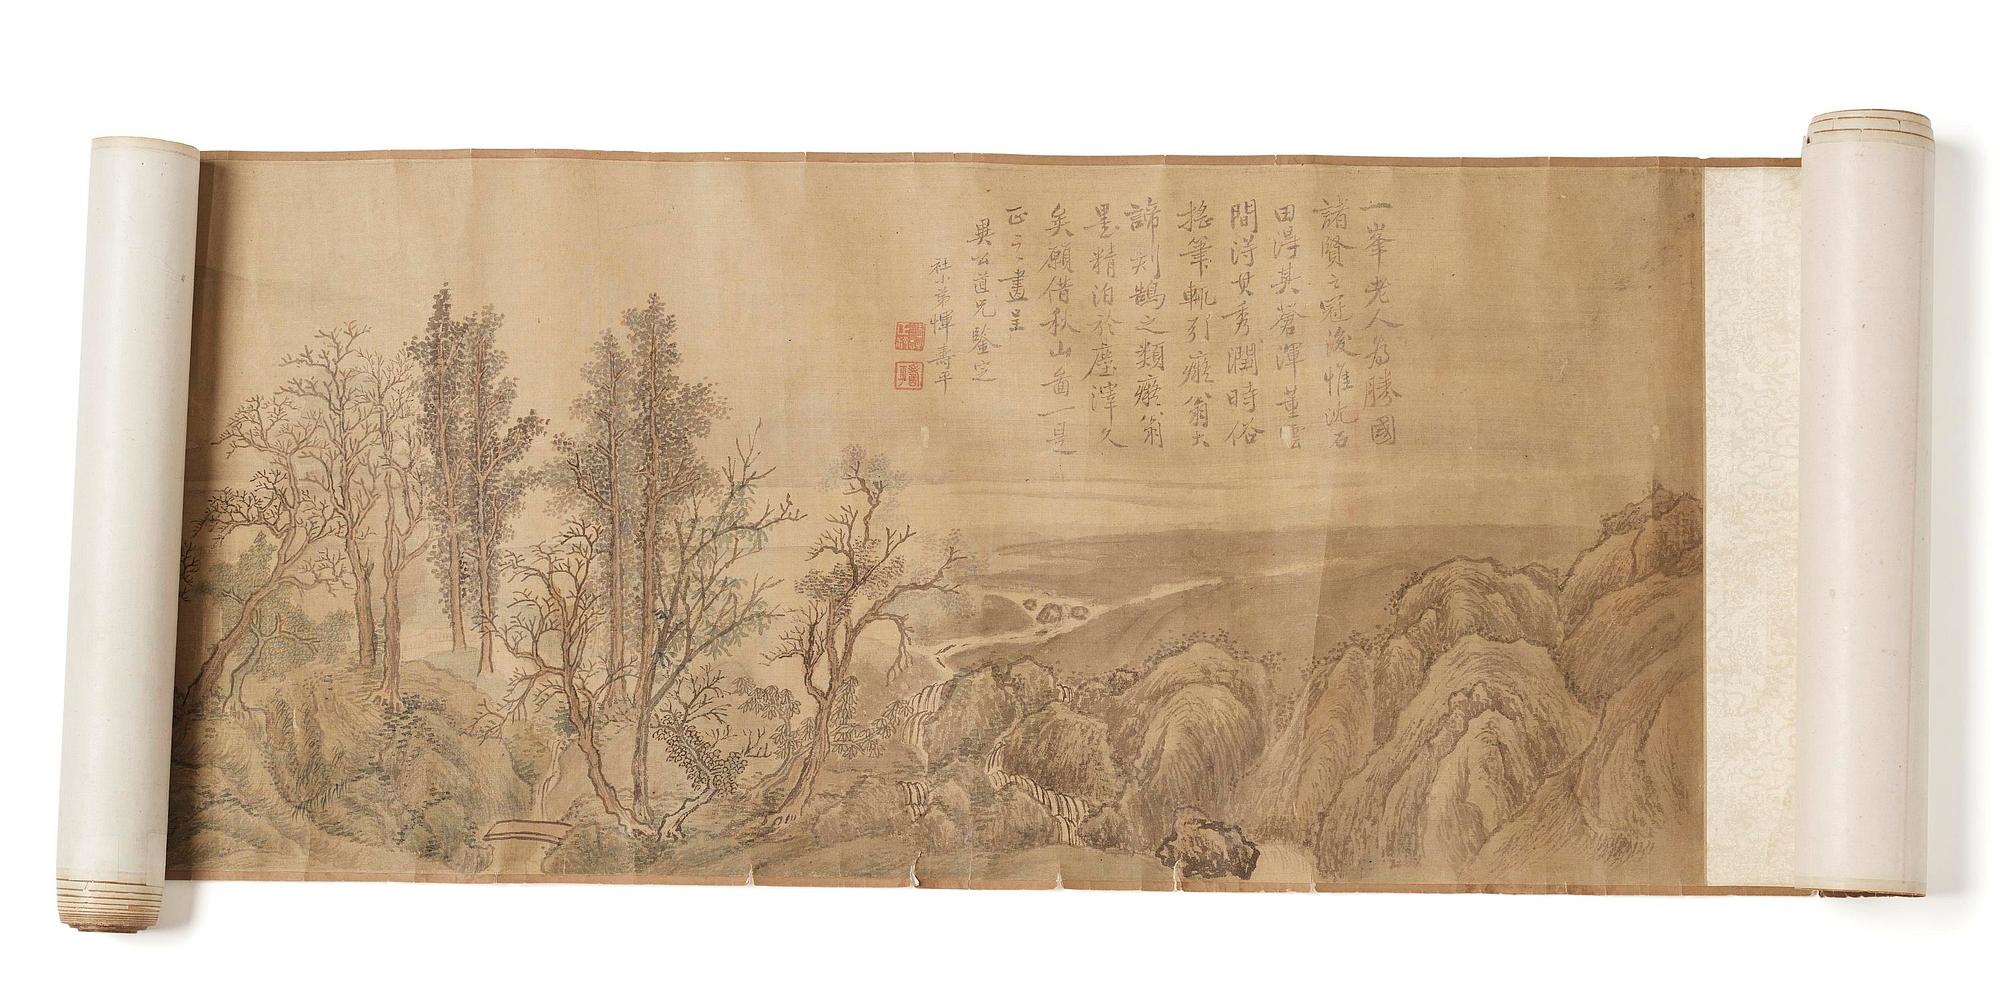 一峯老人為勝國
諸賢之冠後惟沈石
田得其蒼渾董雲
間得其秀潤時俗
搖筆輒引癡翁大
諦刻鵠之類癡翁
墨精泊於塵滓久
矣願借秋山啚一是
正之畫呈
異公道兄鑒定
社小弟惲壽平
壽平